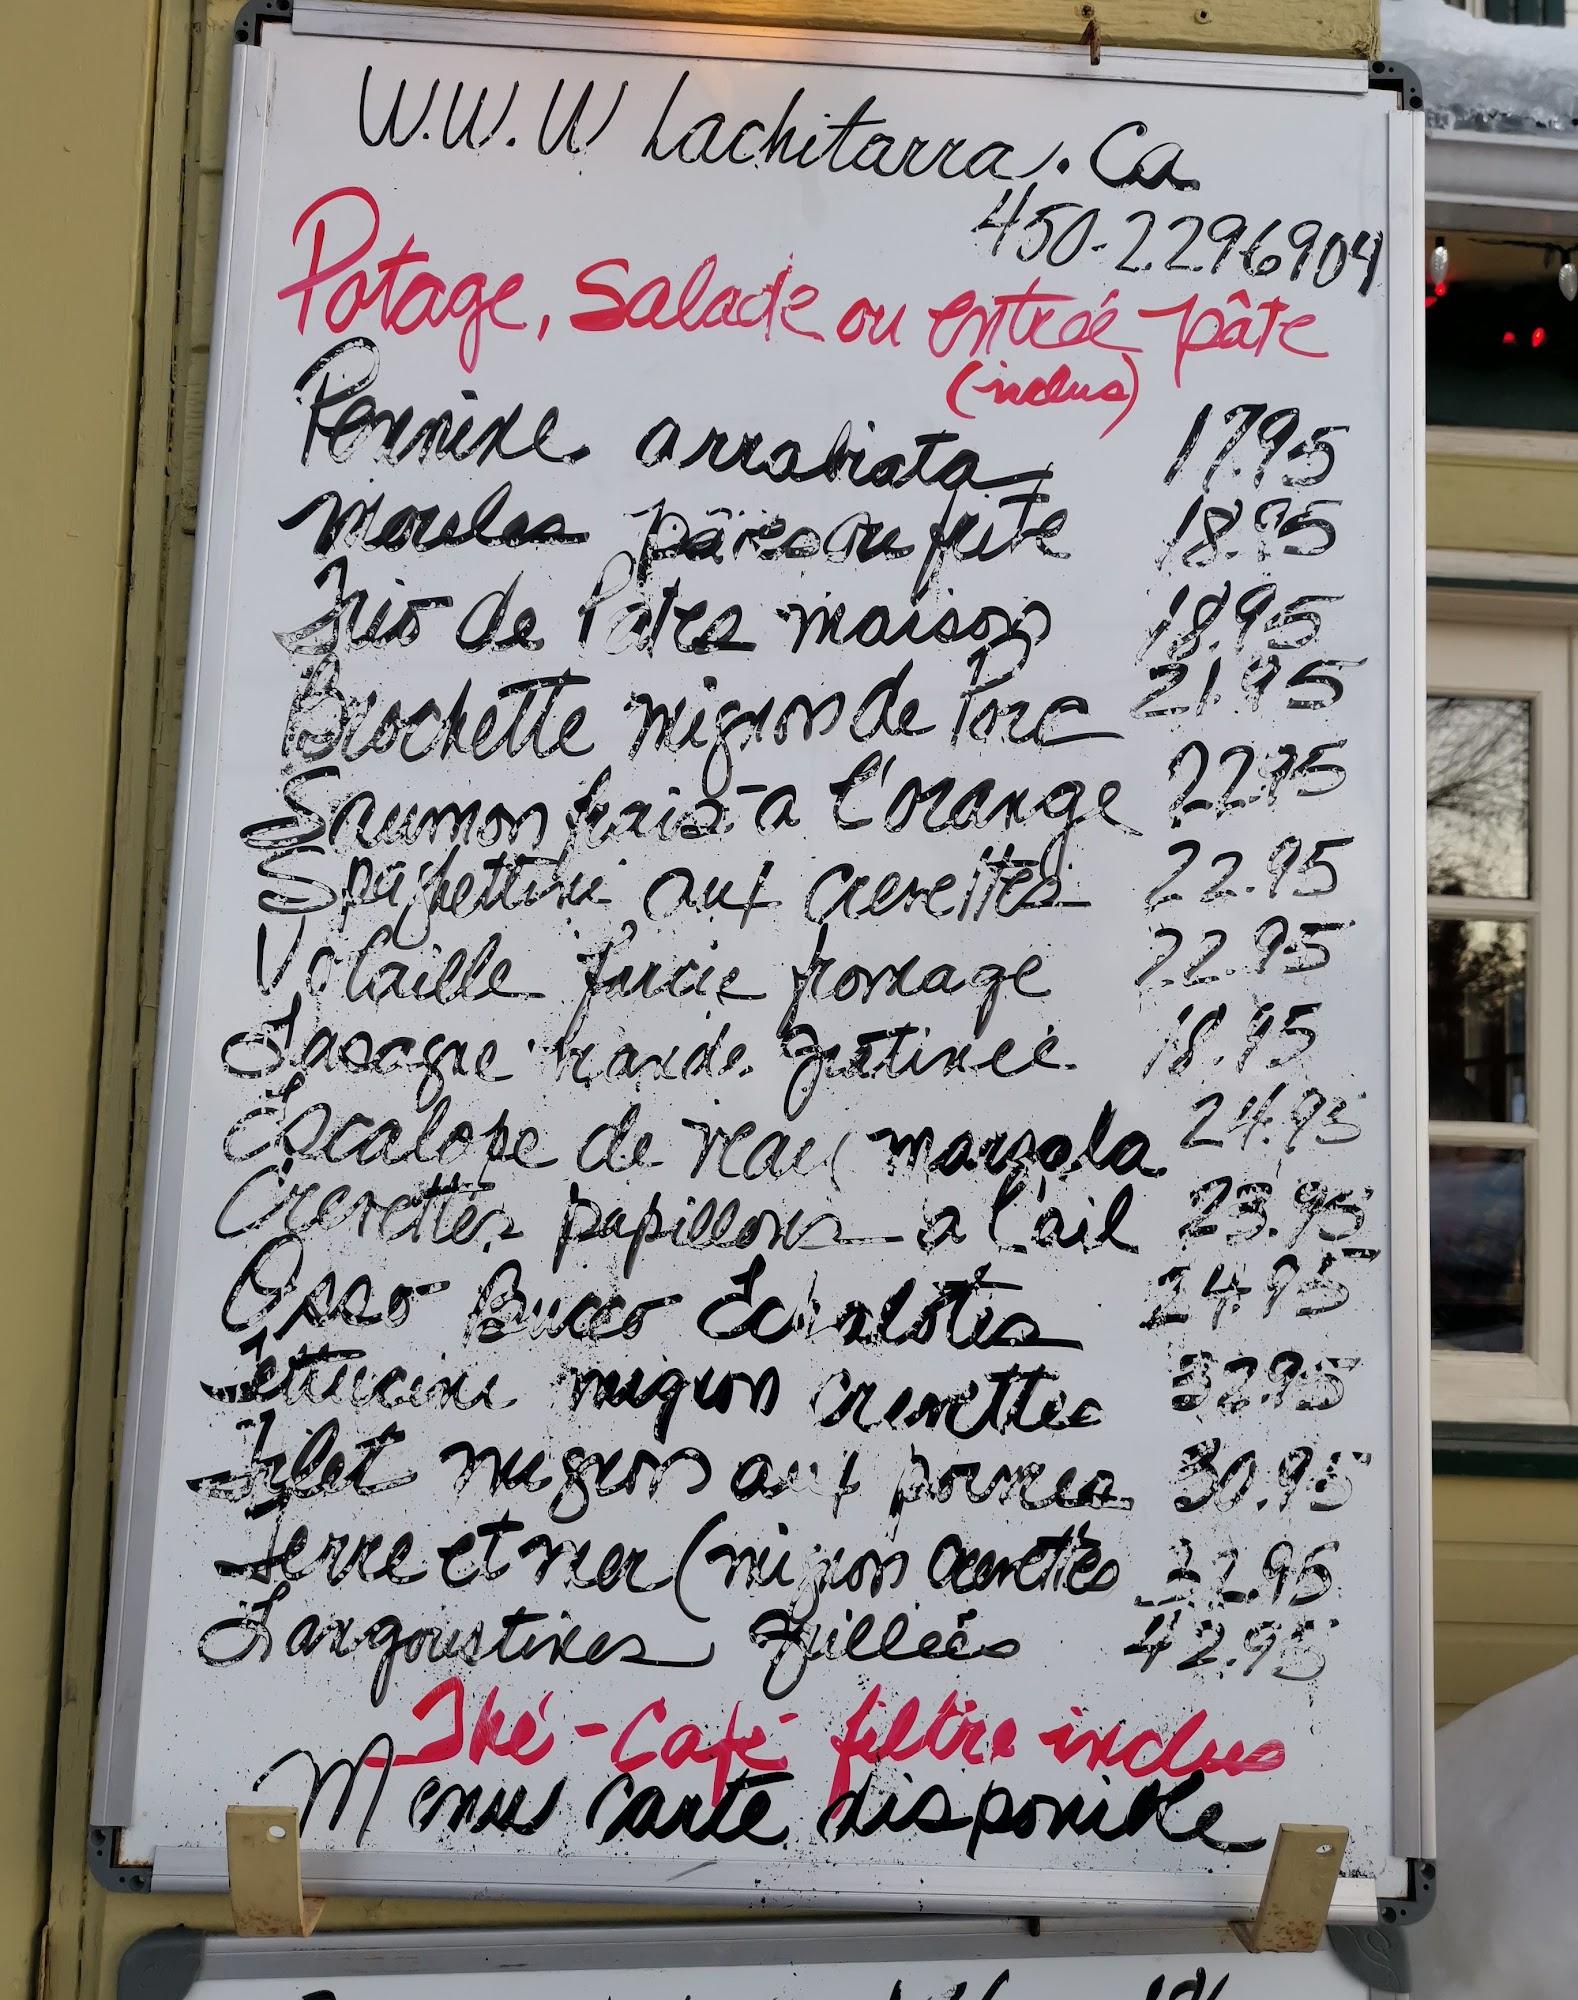 W.W.W Lachitarra.Ca
450-2296904
Potage, Salade ou entrée pâte
(inclus)
Pennine arrabiata 17.95
Moules pâtes ou frite 18.95
Trio de Pates maison 18.95
Brochette mignon de Porc 21.95
Saumon frais a l'orange 22.95
Spaghettini aux crevettes 22.95
Volaille farcie fromage 22.95
Lasagne viande gratinée 18.95
Escalope de veau marsala 24.95
Crevettes papillons a l'ail 23.95
Osso Bucco Echalotes 24.95
Fettucini mignon crevettes 32.95
Filet mignon aux poivres 30.95
Terre et mer (mignon crevettes 32.95
Langoustines grillées 42.95
Thé-Café filtre inclus
Menu carte disponible